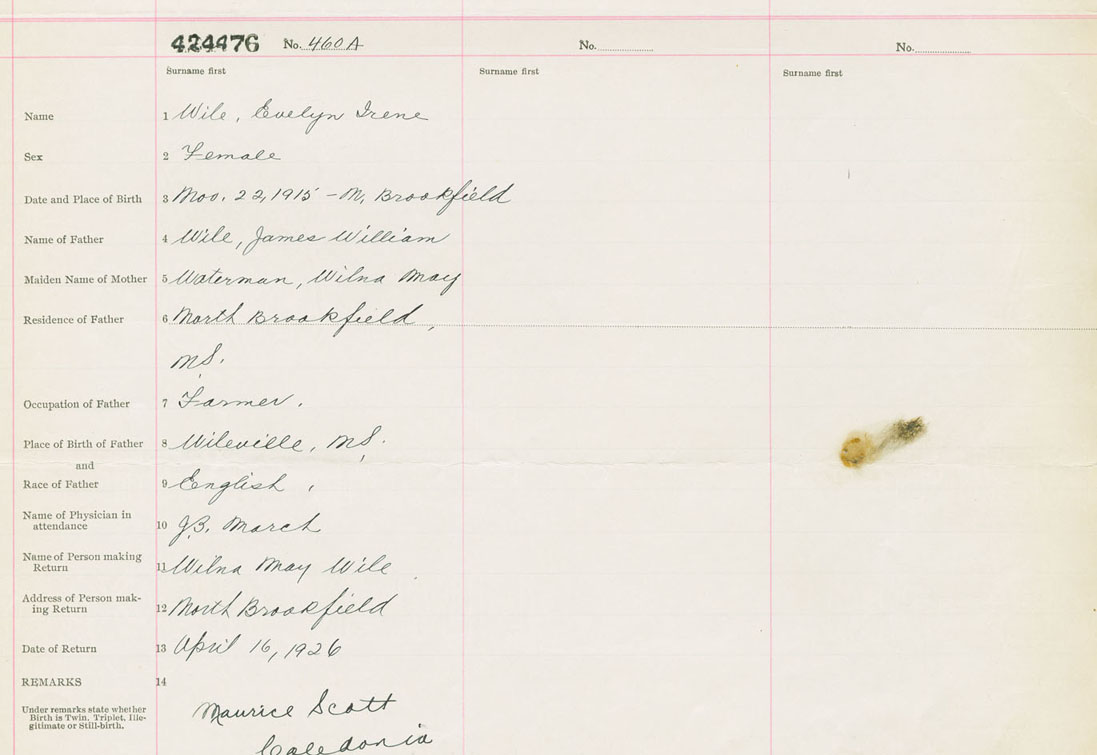 424476 No. 460A No. No.
Surname first Surname first Surname first
Name 1 Wile, Evelyn Irene
Sex 2 Female
Date and Place of Birth 3 Nov. 22, 1915 - N. Brookfield
Name of Father 4 Wile, James William
Maiden Name of Mother 5 Waterman, Wilna May
Residence of Father 6 North Brookfield,
N.S.
Occupation of Father 7 Farmer.
Place of Birth of Father 8 Wileville, N.S.
and
Race of Father 9 English,
Name of Physician in
attendance 10 J.B. March
Name of Person making
Return 11 Wilna May Wile
Address of Person mak-
ing Return 12 North Brookfield
Date of Return 13 April 16, 1926
REMARKS 14
Under remarks state whether
Birth is Twin, Triplet, Ille-
gitimate or Still-birth.
Maurice Scott
Caledonia